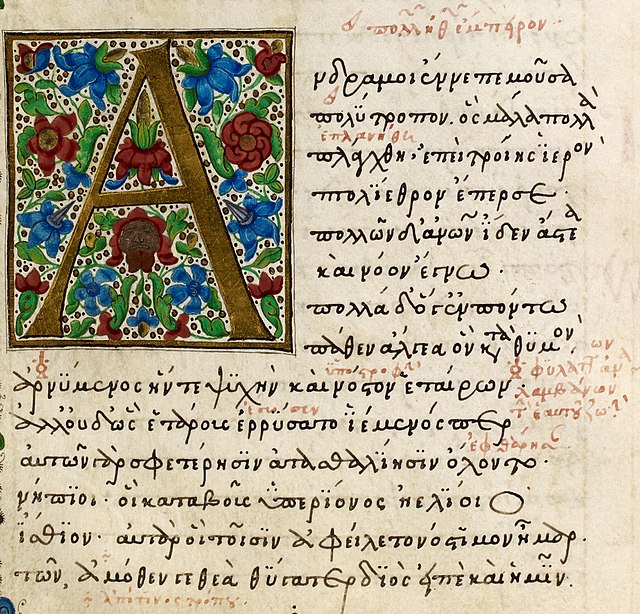 Α
νδραμοι ἔννεπε μοῦσα
πολύτροπον. ὃς μάλα πολλὰ
ἐπλανήθη
πλάγχθη, ἐπεὶ τροίης ἱερὸν
πτολίεθρον ἔπερσε.
πολλῶν δ' ἀνων ἴδεν ἄστεα
καὶ νόον ἔγνω.
πολλὰ δ' ὅγ' ἐν πόντω
πάθεν ἄλγεα ὃν κτὰ θυμόν
ἀρνύμενος ἥν τε ψυχὴν καὶ νόστον ἑταίρων
ἀλλ' οὐδ' ὣς ἑτάρους ἐρρύσατο ἱέμενός περ
αὐτῶν γὰρ σφετέρησιν ἀτασθαλίησιν ὄλοντο.
νήπιοι. οἳ κατὰ βοῦς ὑπερίονος ἠελίοιο
ἤσθιον. αὐτὰρ ὁ τοῖσιν ἀφείλετο νόστιμον ἦμαρ.
τῶν, ἀμόθεν γε θεὰ θύγατερ διὸς εἰπὲ καὶ ἡμῖν.